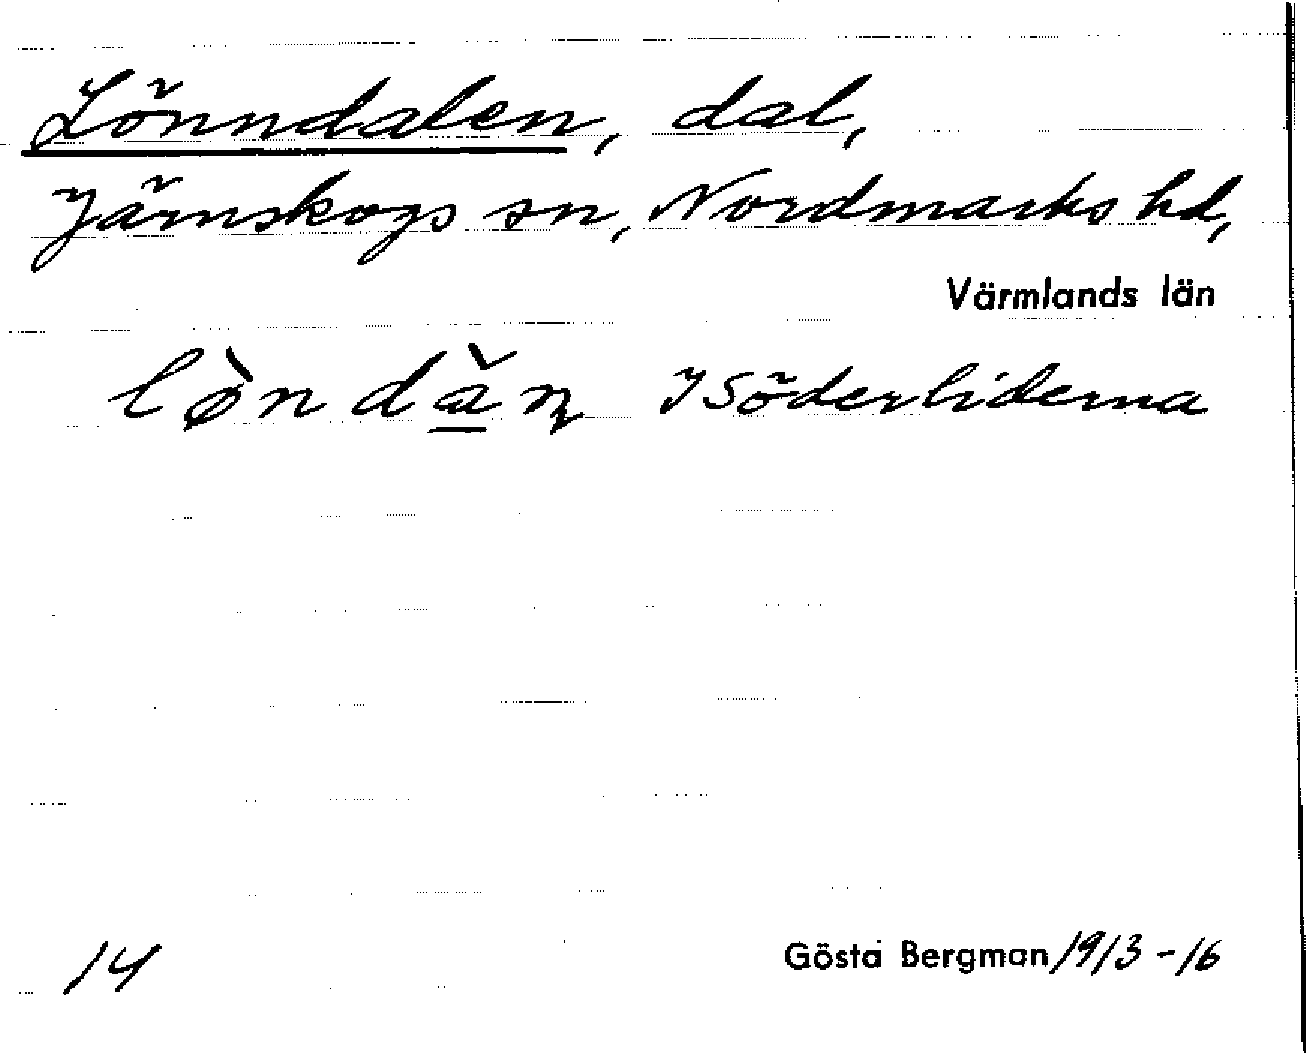 Lönndalen, dal,
Järnskogs sn, Nordmarks hd,
Värmlands län
lø̀ndǎ̱ꞑ I Söderliderna
14
Gösta Bergman 1913-16